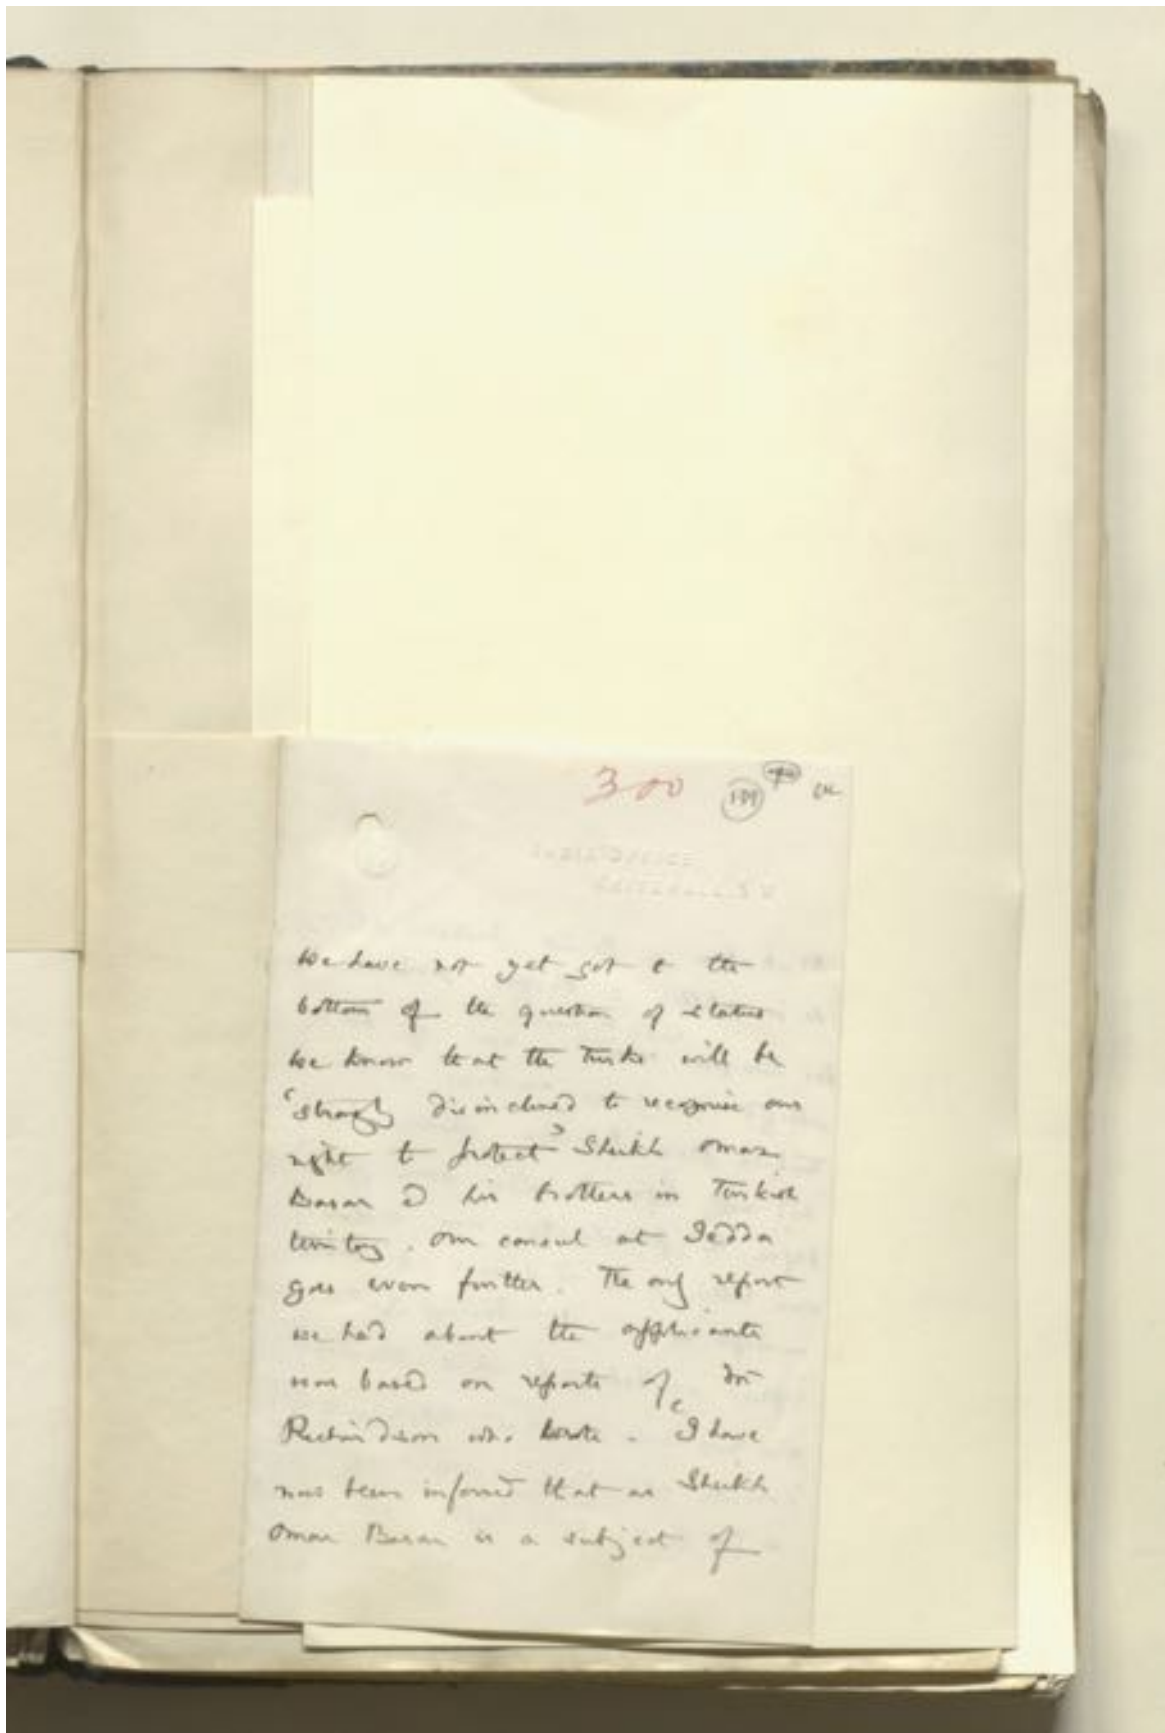 300
We have not yet got to the
bottom of the question of status
We know that the Turks will be
'strongly disinclined to recognise our
right to protect' Sheikh Omar
Basan & his brothers in Turkish
territory. Our consul at Jedda
goes even further. The only report
we had about the applicants
was based on reports of Dr
Richardson who wrote - 'I have
now been informed that as Sheikh
Omar Basan is a subject of